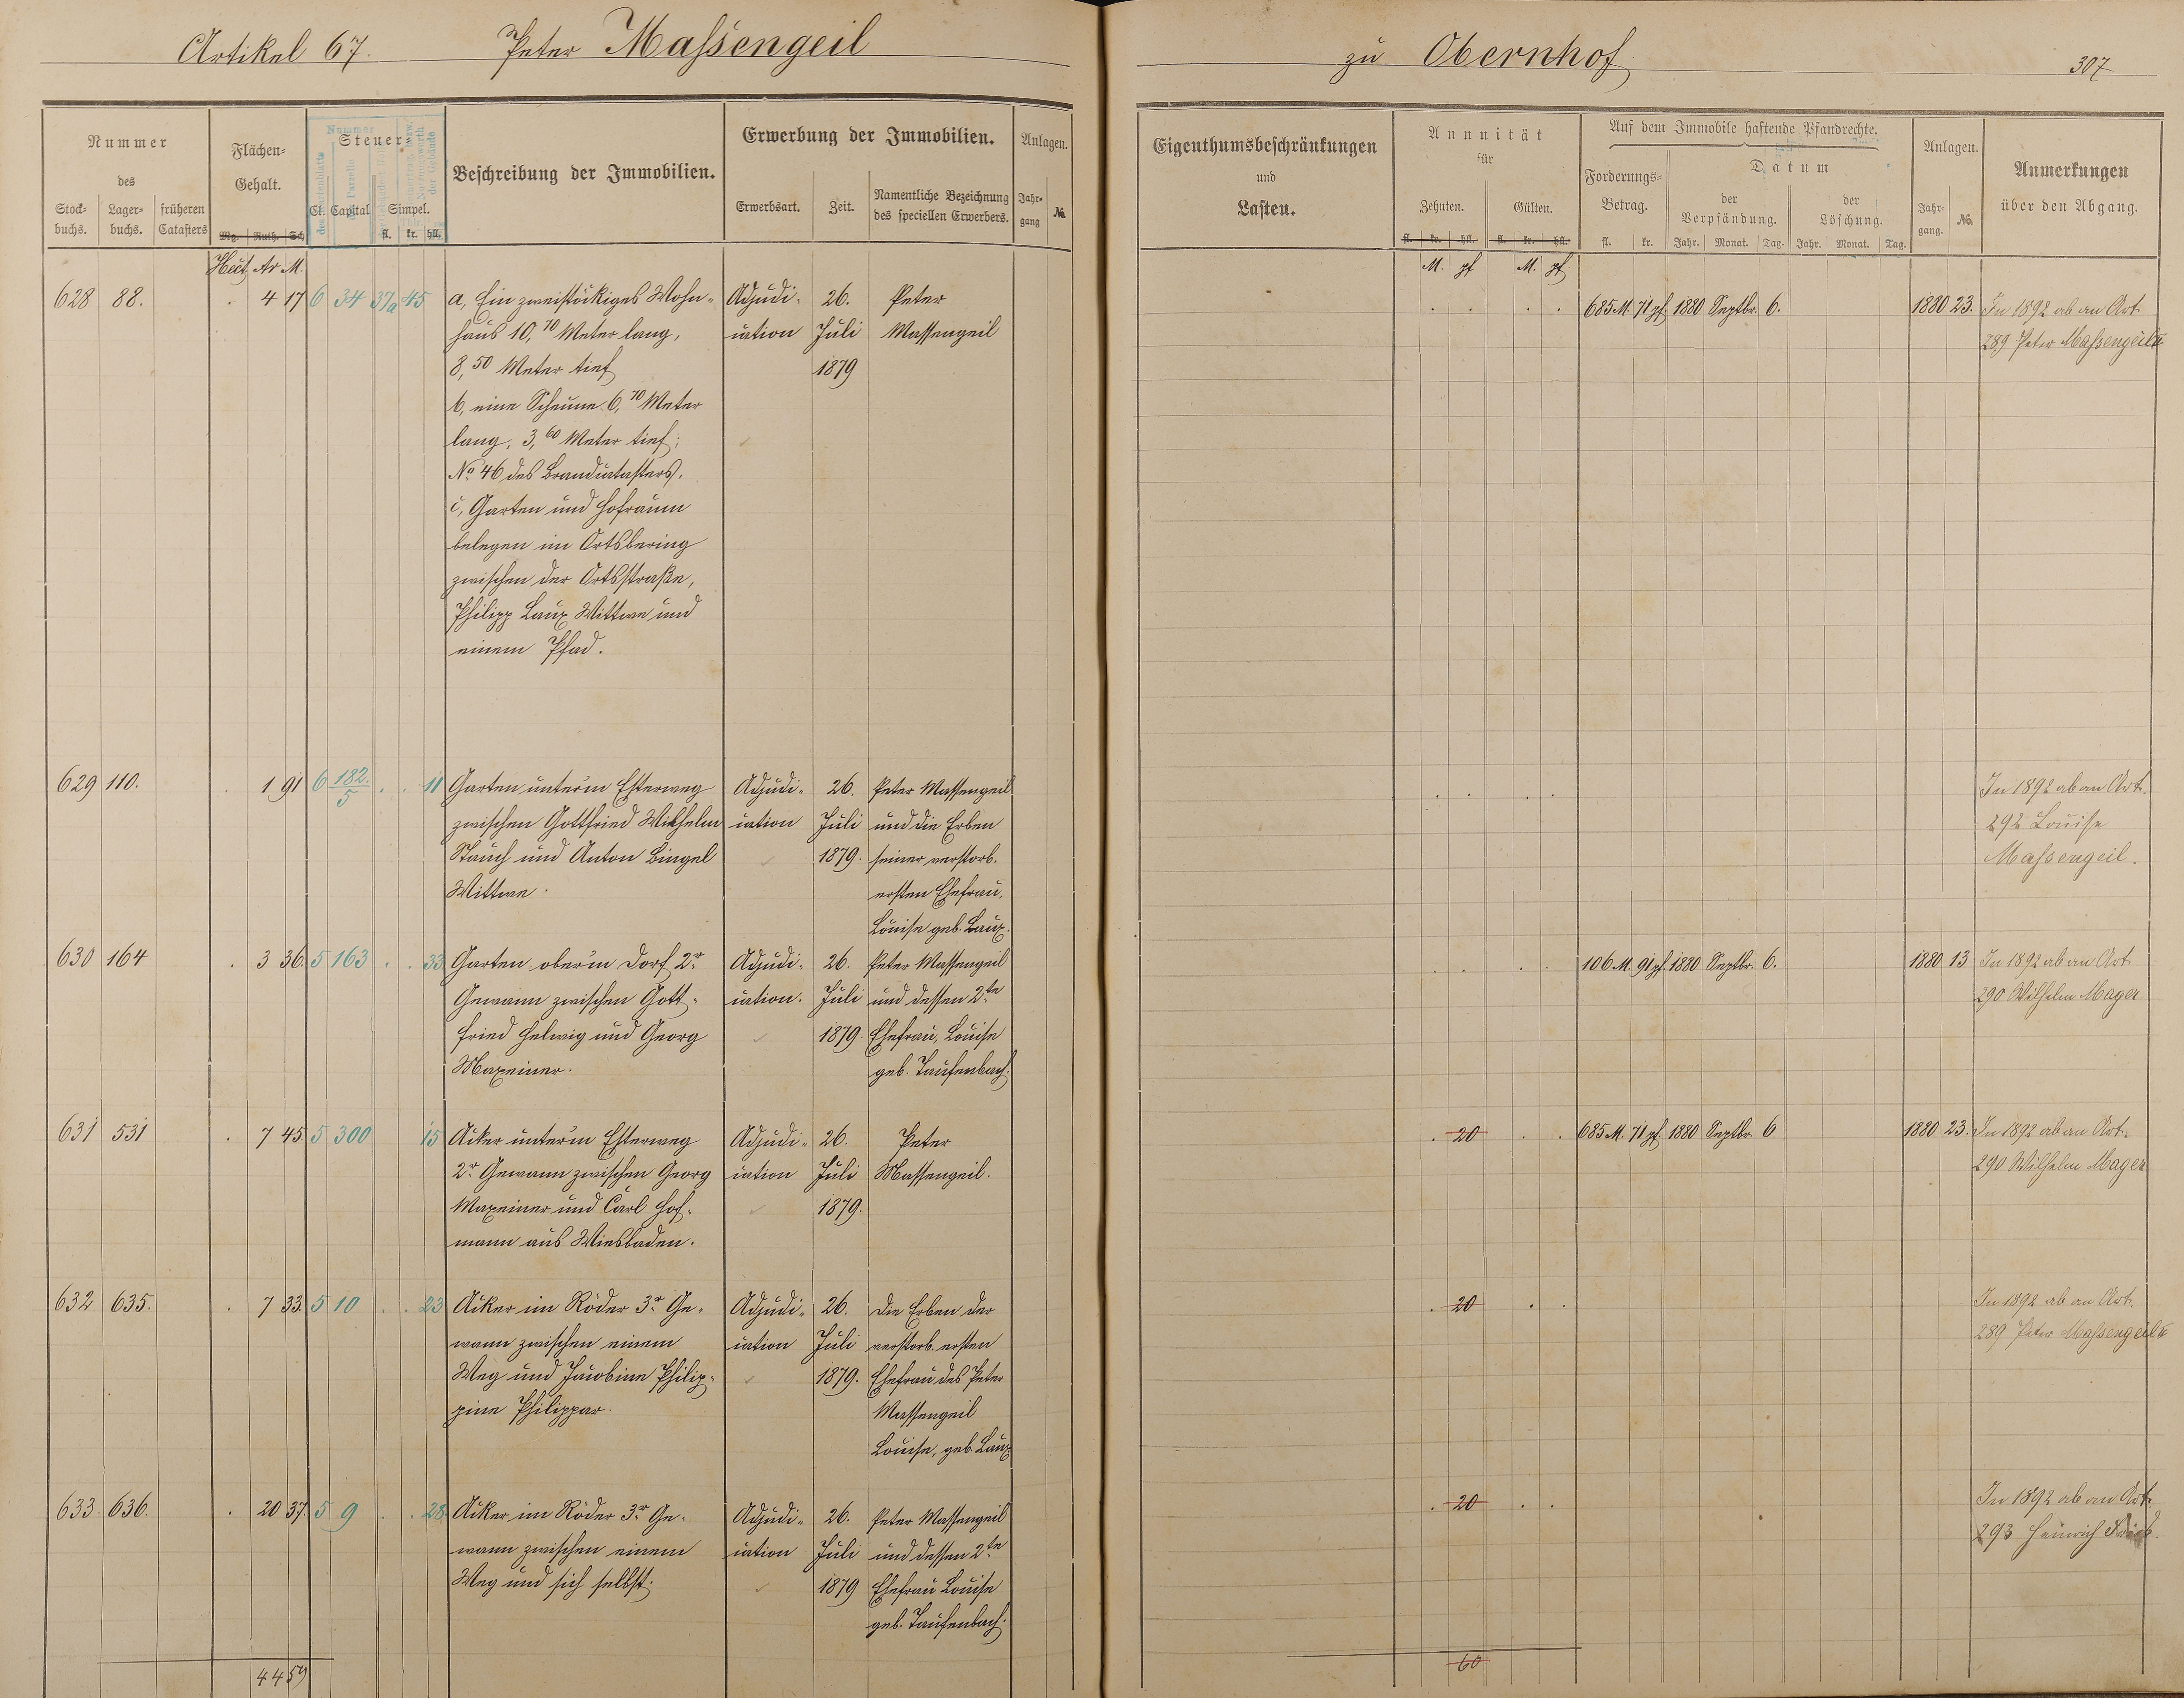 Artikel 67. Peter Maſsengeil
zu Obernhof.
307
Nummer
des
Stock-
buchs.
Lager-
buchs.
früheren
Catasters
Flächen-
Gehalt.
Mg. Ruth. Sch.
Steuer-
Cl. Capital Simpel.
fl. kr. hll.
Beschreibung der Immobilien.
Erwerbung der Immobilien.
Erwerbsart.
Zeit.
Namentliche Bezeichnung
des speciellen Erwerbers.
Anlagen.
Jahr-
gang
No.
Eigenthumsbeschränkungen
und
Lasten.
Annuität
für
Zehnten. Gülten.
fl. kr. hll. fl. kr. hll.
Auf dem Immobile haftende Pfandrechte.
Forderungs-
Betrag.
fl. kr.
Datum
der
Verpfändung.
der
Löschung.
Jahr. Monat. Tag. Jahr. Monat. Tag.
Anlagen.
Jahr-
gang.
No.
Anmerkungen
über den Abgang.
Hect. Ar M.
M. pf. M. pf.
628 88. . 4 17 6 34 37a 45
a, Ein zweistöckiges Wohn-
haus 10,70 Meter lang,
8,50 Meter tief
b, eine Scheune 6,70 Meter
lang, 3,60 Meter tief;
No 46 des Brandcatasters,
c, Garten und Hofraum
belegen im Ortsbering
zwischen der Ortsstraße,
Philipp Laux Wittwe und
einem Pfad.
Adjudi-
cation
26.
Juli
1879
Peter
Massengeil
685 M. 71 pf. 1880 Septbr. 6.
1880 23.
In 1892 ab an Art.
289 Peter Maſsengeil II
629 110. . 1 91 6 182/5 . . 11
Garten unterm Esterweg
zwischen Gottfried Wilhelm
Stauch und Anton Bingel
Wittwe.
Adjudi-
cation
26.
Juli
1879.
Peter Massengeil
und die Erben
seiner verstorb.
ersten Ehefrau,
Louise geb. Laux.
In 1892 ab an Art.
292 Louise
Maſsengeil.
630 164 . 3 36. 5 163 . . 33
Garten oberm Dorf 2r
Gewann zwischen Gott-
fried Helwig und Georg
Maxeiner.
Adjudi-
cation.
26.
Juli
1879.
Peter Massengeil
und dessen 2te
Ehefrau, Louise
geb. Taufenbach.
106 M. 91 pf. 1880 Septbr. 6.
1880 13
In 1892 ab an Art.
290 Wilhelm Mager
631 531 . 7 45. 5 300 15
Acker unterm Esterweg
2r Gewann zwischen Georg
Maxeiner und Carl Hof-
mann aus Wiesbaden.
Adjudi-
cation
26.
Juli
1879.
Peter
Massengeil.
. 20 . .
685 M. 71 pf. 1880 Septbr. 6
1880 23.
In 1892 ab an Art.
290 Wilhelm Mager
632 635. . 7 33. 5 10 . . 23
Acker im Röder 3r Ge-
wann zwischen einem
Weg und Jacobine Philip-
pine Philippar.
Adjudi-
cation
26.
Juli
1879.
die Erben der
verstorb. ersten
Ehefrau des Peter
Massengeil
Louise, geb. Laux
. 20 . .
In 1892 ab an Art.
289 Peter Maſsengeil II
633. 636. . 20 37. 5 9 . . 28
Acker im Röder 3r Ge-
wann zwischen einem
Weg und sich selbst.
Adjudi-
cation
26.
Juli
1879
Peter Massengeil
und dessen 2te
Ehefrau Louise
geb. Taufenbach.
. 20 . .
In 1892 ab an Art.
293 Heinrich
44 59
60